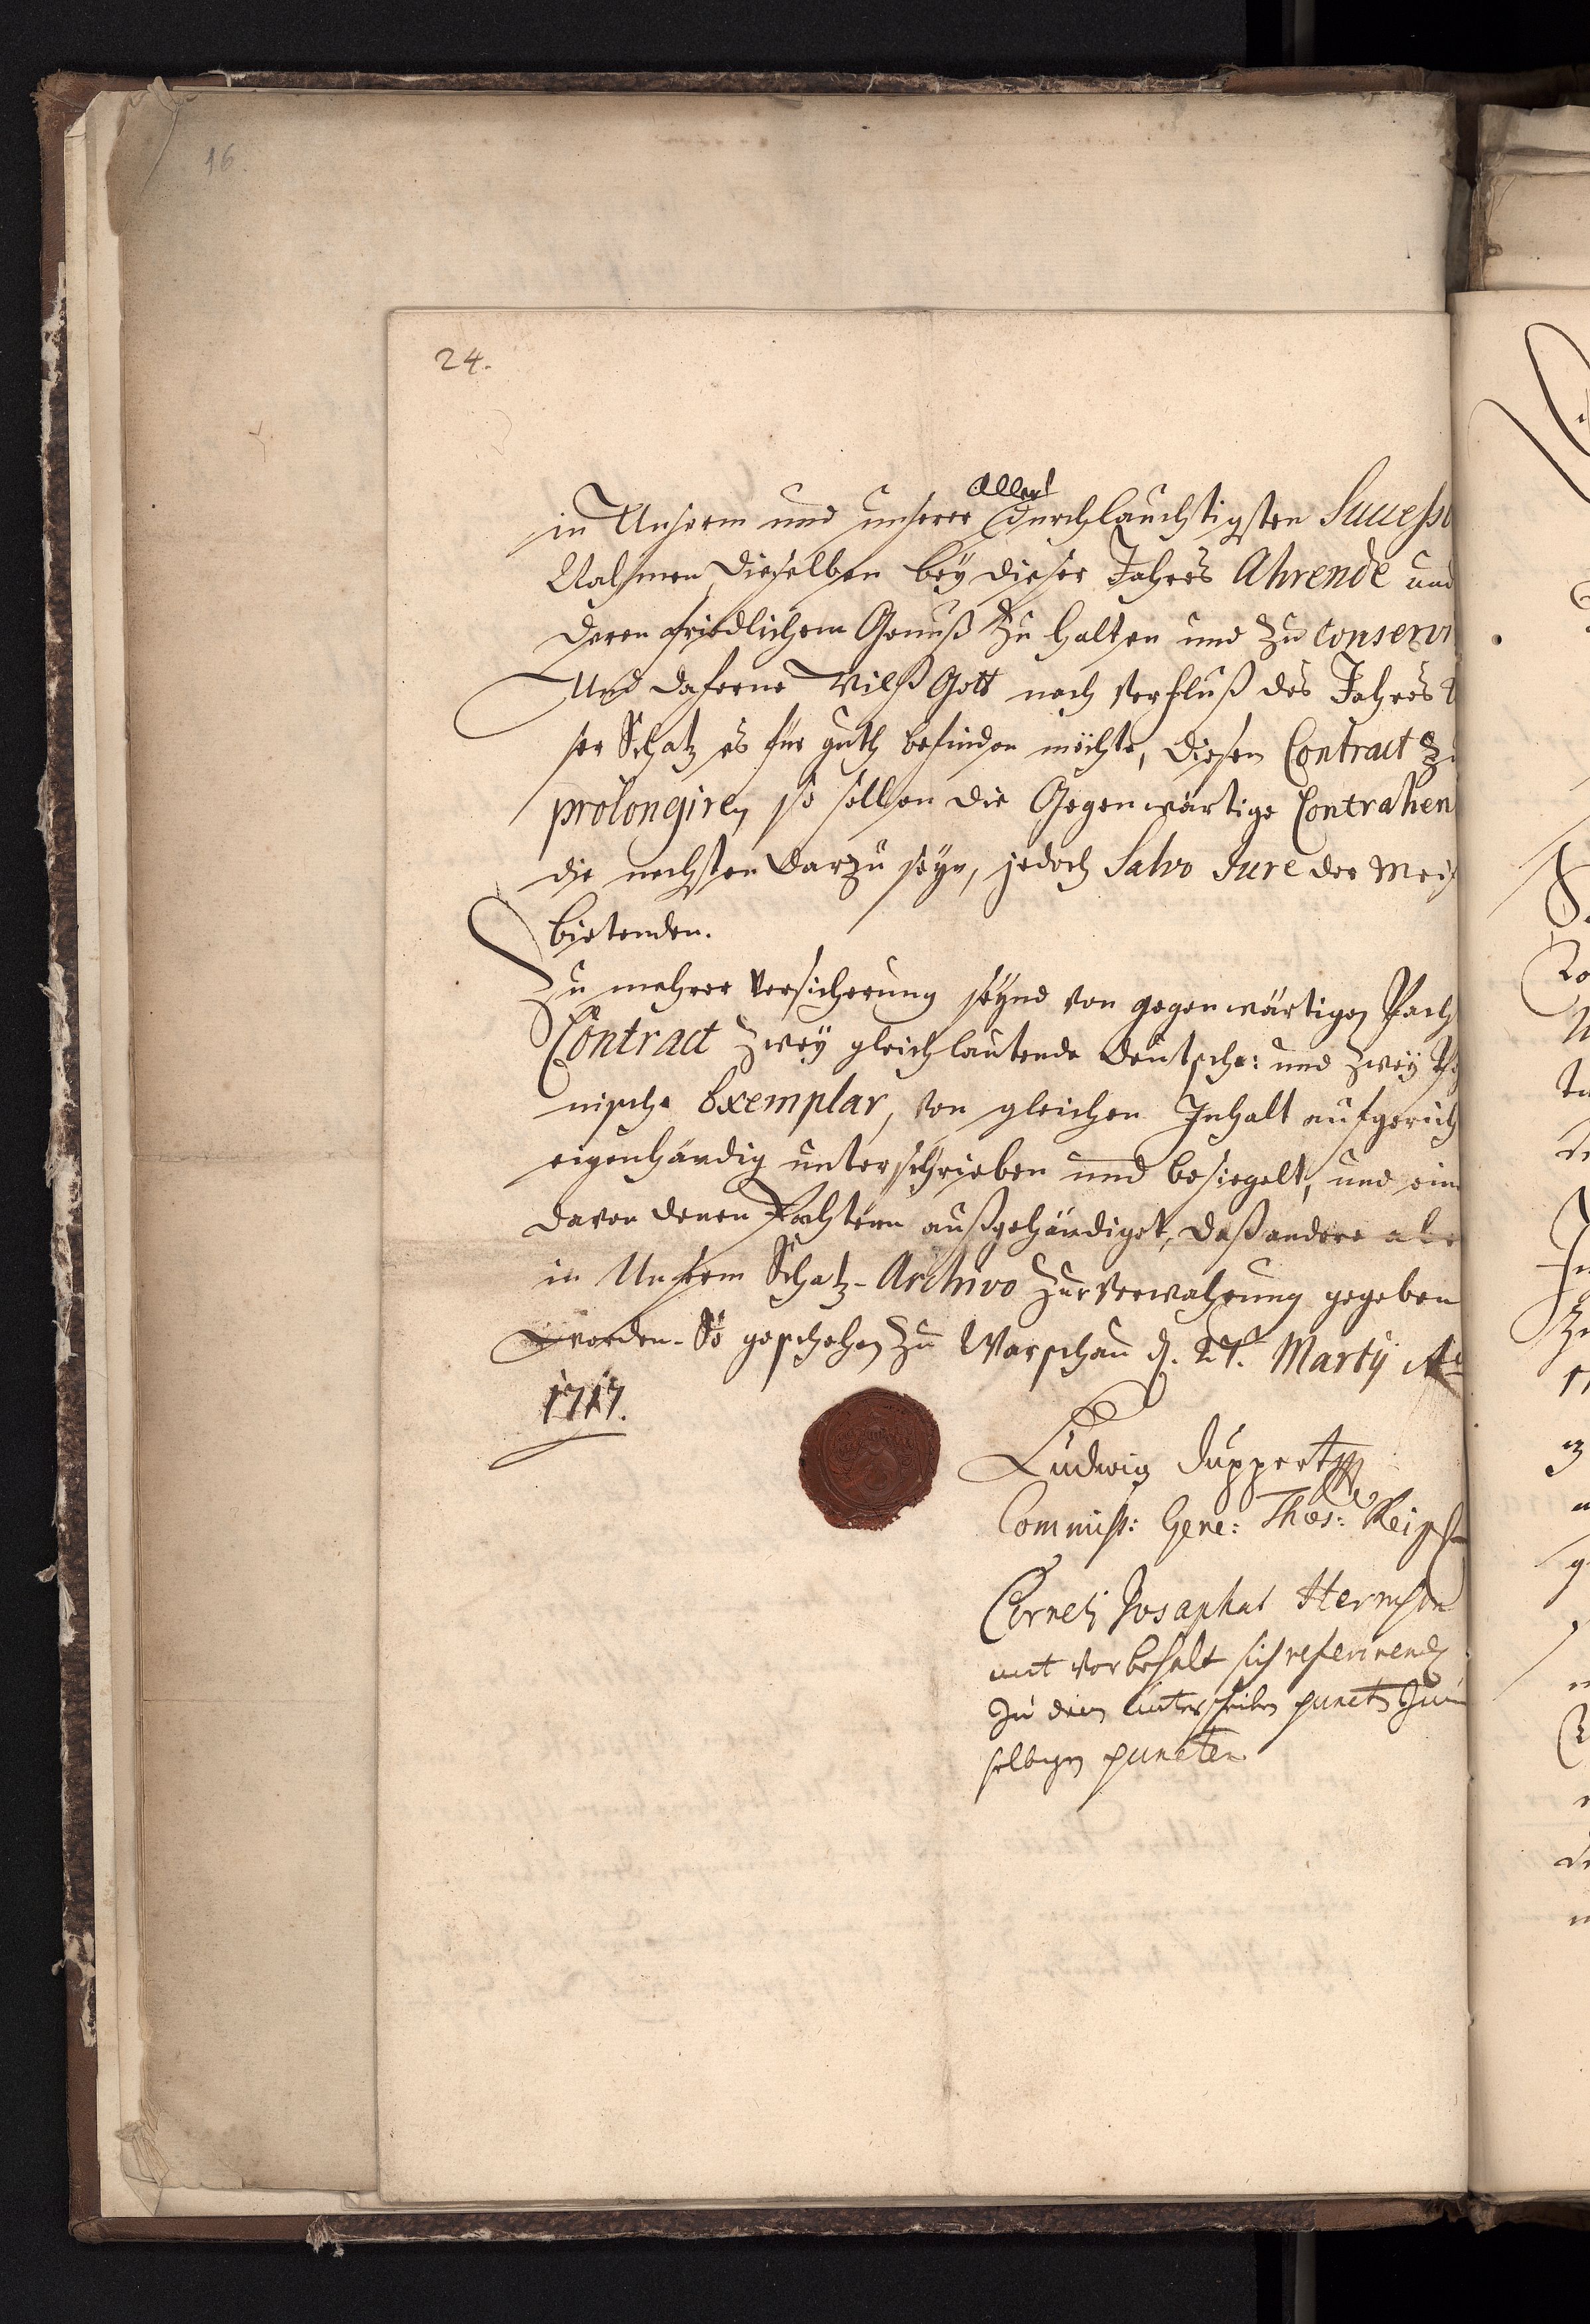 16.
24.
Aller
in Unserm und unserer durchlauchtigsten Successo
Nahmen dieselben bey dieser Jahres Ahrende und
deren friedlichem Genuß zu halten und zu conservi
Und daferne Wilß Gott nach Verfluß des Jahres
ser Schatz es für guth befinden möchte, diesen Contract zu
prolongiren, so sollen die Gegenwärtige Contrahen
die nechsten darzu seyn, jedoch Salvo Jure der Meis
bietenden.
Zu mehrer Versicherung seynd von gegenwärtigen Pach
Contract zwey gleichlautende deutsche: und zwey Poh
nische Exemplar, von gleichen Inhalt aufgerich
eigenhändig unterschrieben und besiegelt, und ein
davon denen Pachtern außgehändiget, daß andere abe
in Unserm Schatz-Archivo zur Verwahrung gegeben
worden. So geschehen zu Warschau d. Marty Ao
1717.
Ludwig Duppert
Commiss: Gene: Thes: Reip
Cornely Josaphat
mit Vorbehalt sich referirend
zu dem puncten
selbigen puncten